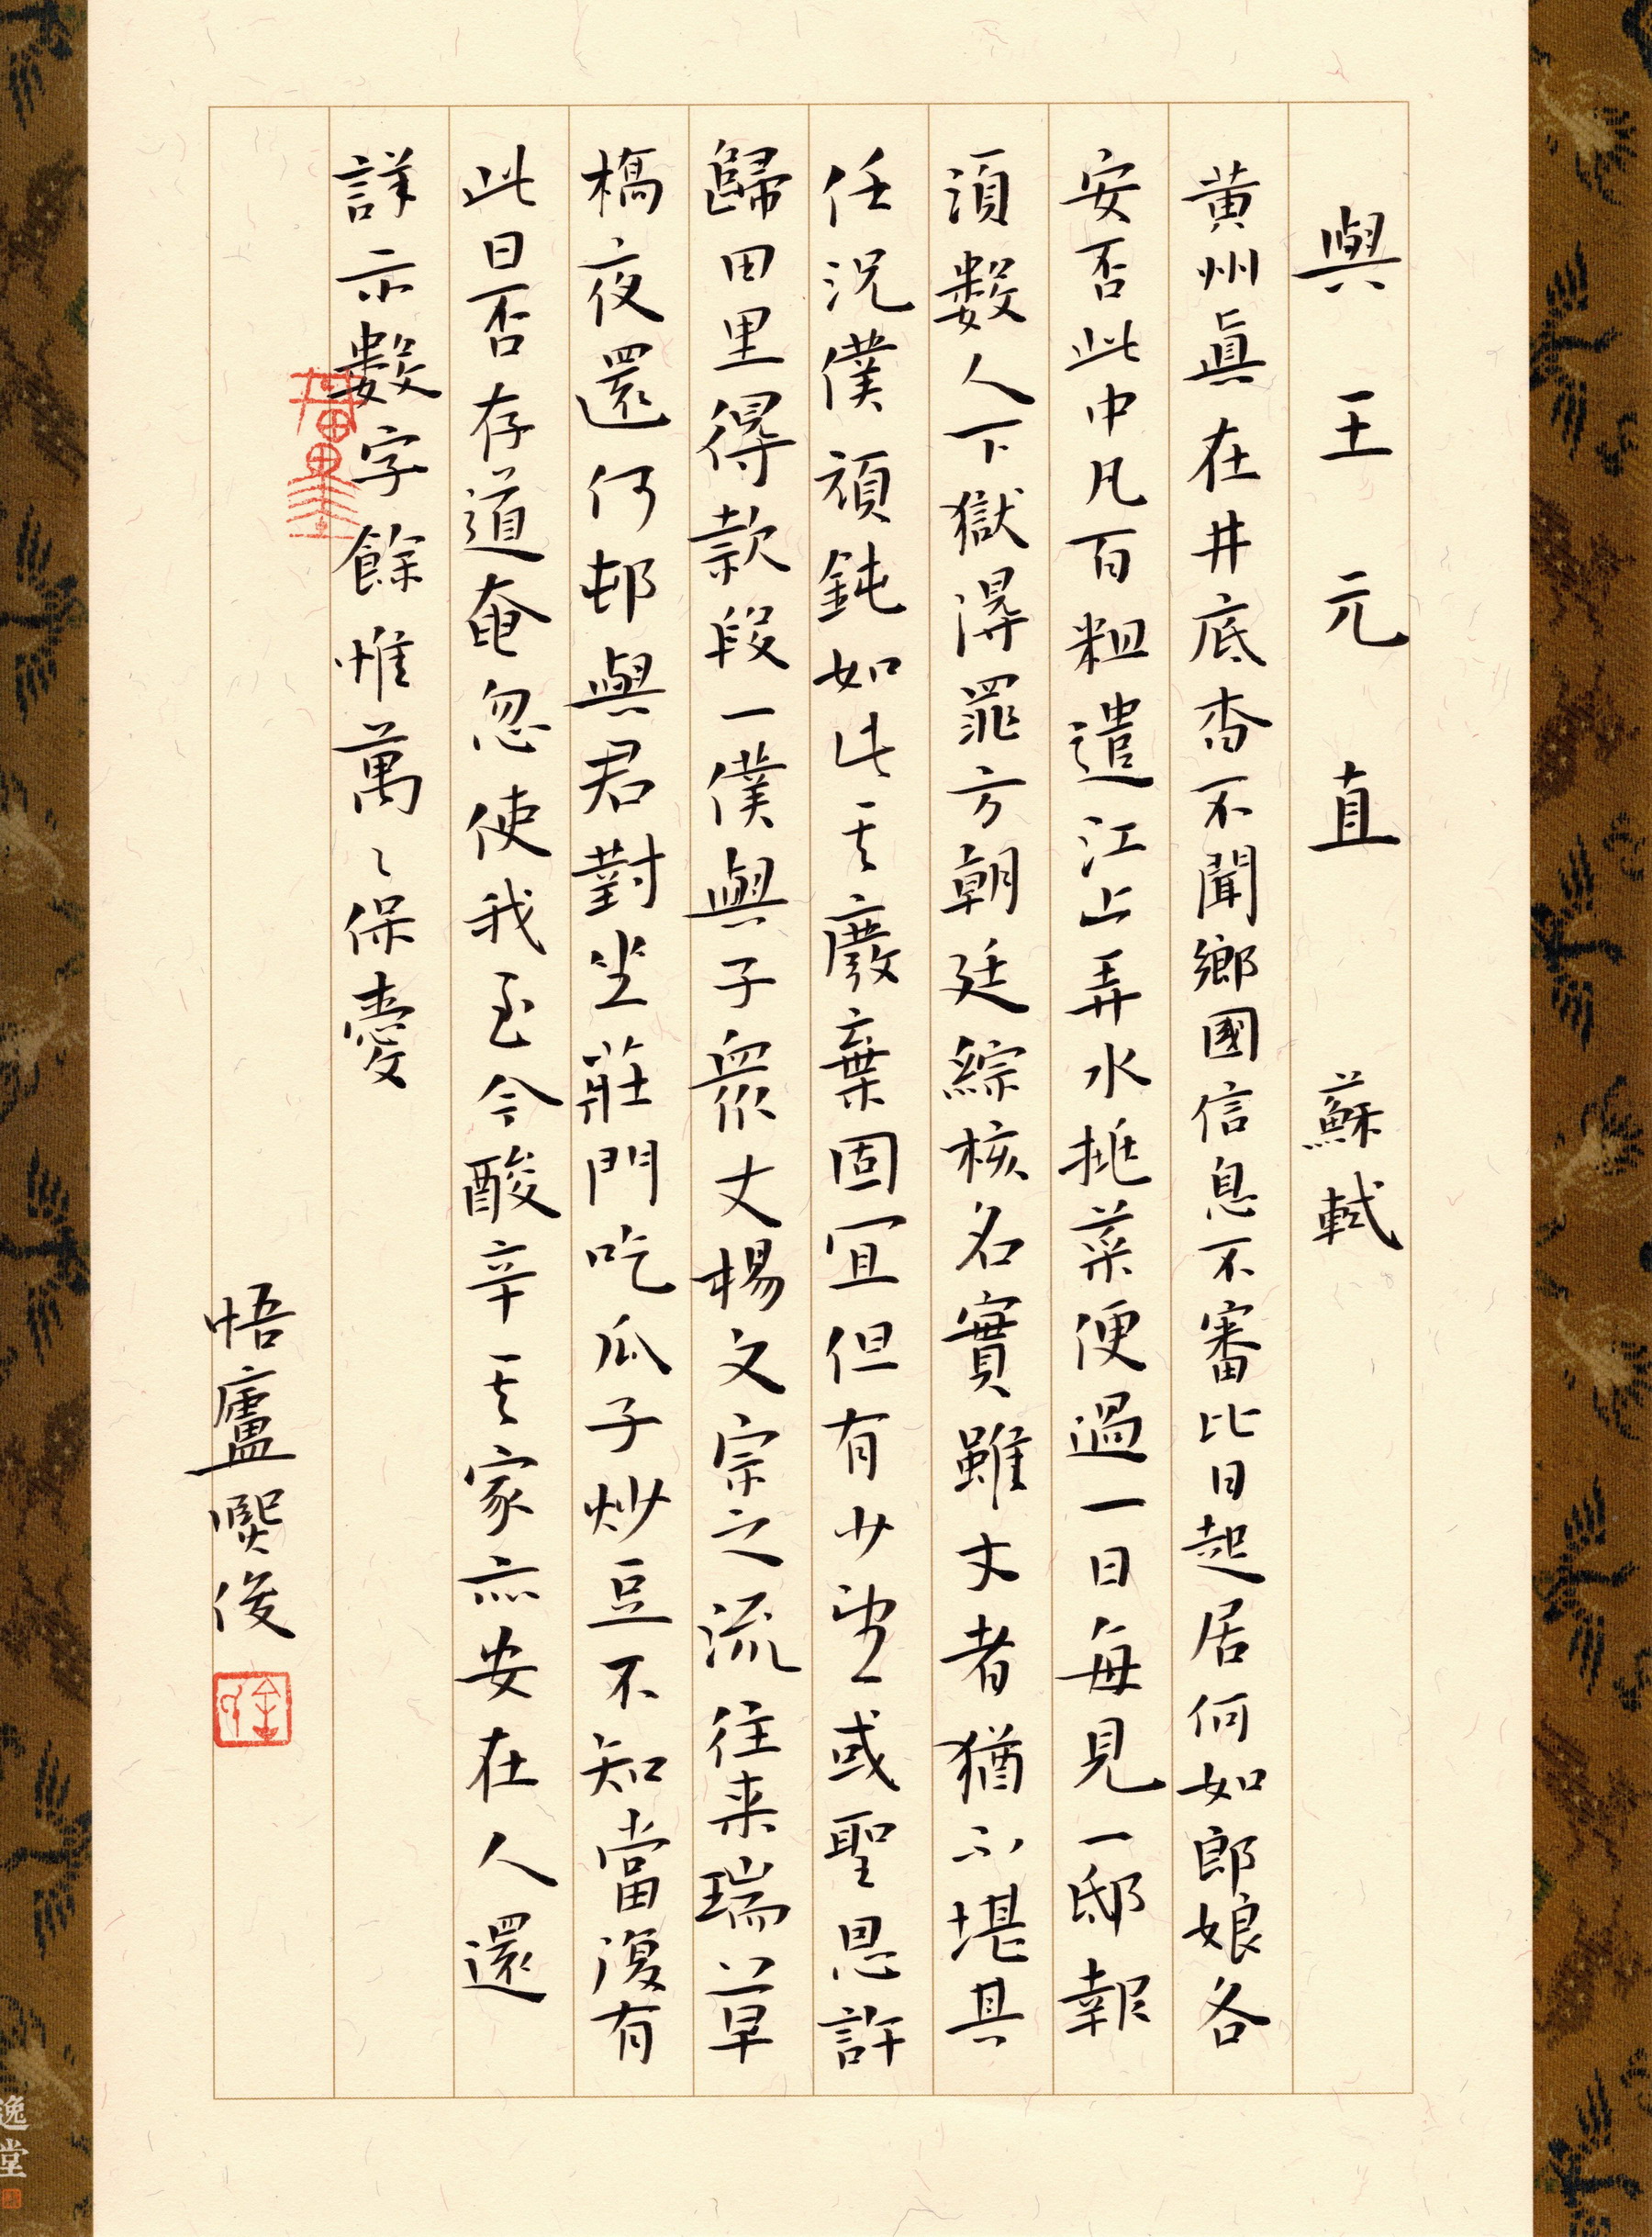 與王元直　蘇軾
黃州眞在井底杳不聞鄉國信息不審比日起居何如郎娘各
安否此中凡百粗遣江上弄水挑菜便過一日每見一邸報
須數人下獄得罪方朝廷綜核名實雖才者猶不堪其
任況僕頑鈍如此其廢棄固宜但有少望或聖恩許
歸田里得款段一僕與子衆丈楊文宗之流往来瑞草
橋夜還何邨與君對坐莊門吃瓜子炒豆不知當復有
此日否存道奄忽使我至今酸辛其家亦安在人還
詳示數字餘惟萬〻保愛
悟廬熙俊
逸堂